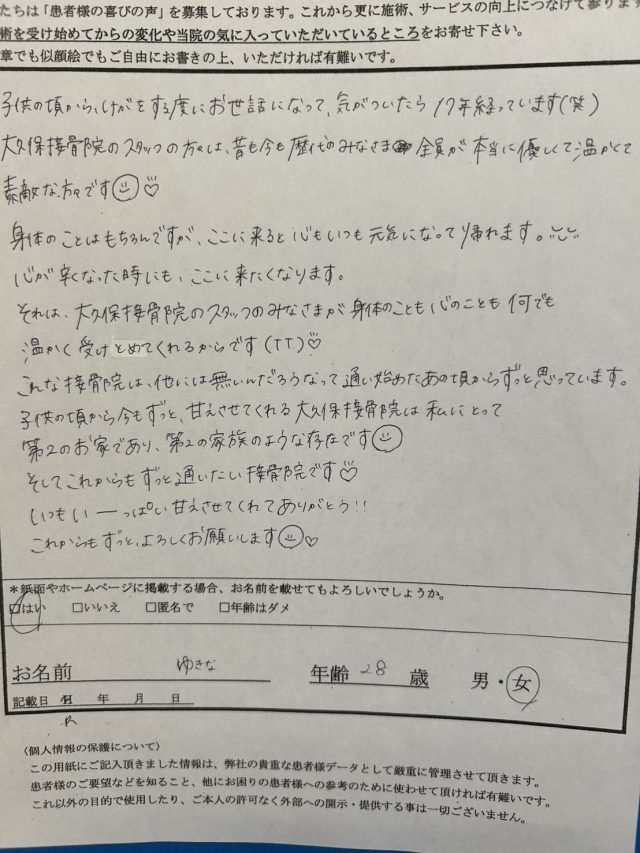 たちは「患者様の喜びの声」を募集しております。これから更に施術、サービスの向上につなげて参ります
術を受け始めてからの変化や当院の気に入っていただいているところをお寄せ下さい。
章でも似顔絵でもご自由にお書きの上、いただければ有難いです。
子供の頃から、けがをする度にお世話になって、気がついたら17年経っています(笑)
大久保接骨院のスタッフの方々は、昔も今も歴代のみなさま全員が本当に優しくて温かくて
素敵な方々です☺♡
身体のことはもちろんですが、ここに来ると心もいつも元気になって帰れます。
心が辛くなった時にも、ここに来たくなります。
それは、大久保接骨院のスタッフのみなさまが身体のことも心のことも何でも
温かく受けとめてくれるからです(TT)♡
こんな接骨院は、他には無いんだろうなって通い始めたあの頃からずっと思っています。
子供の頃から今もずっと、甘えさせてくれる大久保接骨院は私にとって
第2のお家であり、第2の家族のような存在です☺
そしてこれからもずっと通いたい接骨院です♡
いつもいーっぱい甘えさせてくれてありがとう!!
これからもずっと、よろしくお願いします☺♡
*紙面やホームページに掲載する場合、お名前を載せてもよろしいでしょうか。
□はい □いいえ □匿名で □年齢はダメ
お名前 ゆきな 年齢 28 歳 男・女
記載日 H 年 月 日
R
〈個人情報の保護について〉
この用紙にご記入頂きました情報は、弊社の貴重な患者様データとして厳重に管理させて頂きます。
患者様のご要望などを知ること、他にお困りの患者様への参考のために使わせて頂ければ有難いです。
これ以外の目的で使用したり、ご本人の許可なく外部への開示・提供する事は一切ございません。